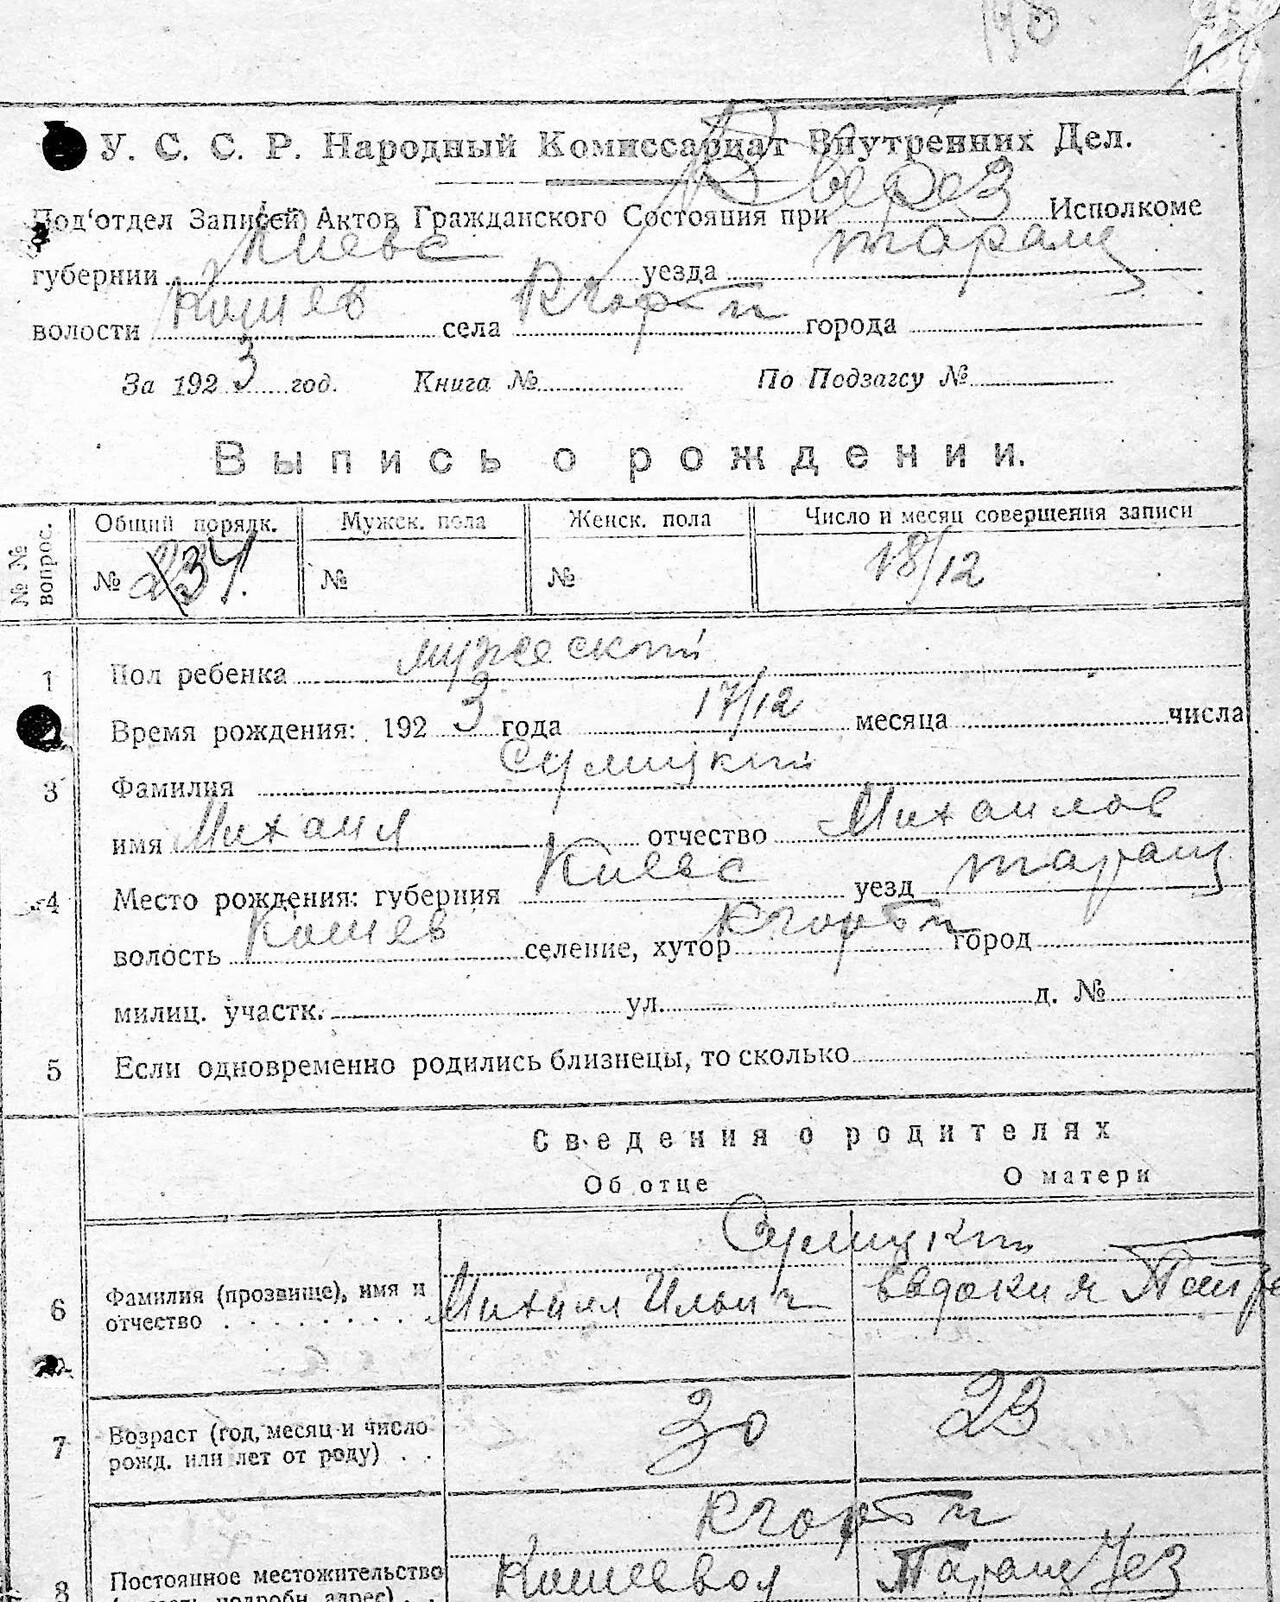 У. С. С. Р. Народный Комиссариат Внутренних Дел.
Под‘отдел Записей Актов Гражданского Состояния при Исполкоме
губернии Киевс уезда таращ
волости Кошев села города
За 1923 год. Книга № По Подзагсу №
Выпись о рождении.
№ № вопрос. Общий порядк. Мужск. пола Женск. пола Число и месяц совершения записи
№ № № 18/12
1 Пол ребенка мужеский
2 Время рождения: 1923 года 17/12 месяца числа
3 Фамилия
имя Михаил отчество Михаилов
4 Место рождения: губерния Киевс уезд таращ
волость Кошев селение, хутор город
милиц. участк. ул. д. №
5 Если одновременно родились близнецы, то сколько
Сведения о родителях
Об отце О матери
6 Фамилия (прозвище), имя и Михаил Ильич Евдокия
отчество
7 Возраст (год, месяц и число 30 23
рожд. или лет от роду)
8 Постоянное местожительство Кошев вол Таращ уез